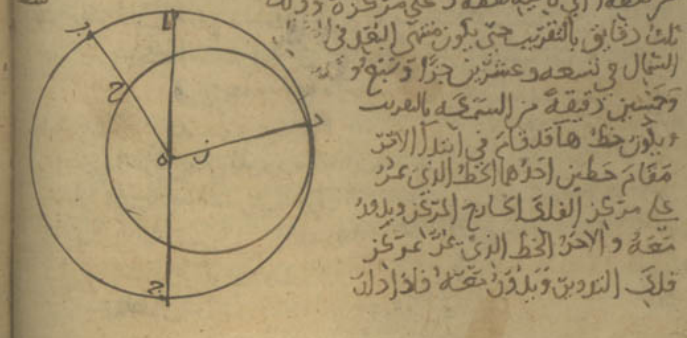 تلك دقايق بالتقريب حتى يكون منتهى البعد في
الشمال في تسعه وعشرين جزا وسبع
وخمسين دقيقة من السمكه بالتقريب
ويكون خط ها قد قام في ابتدا الامر
مقام خطين احدهما الخط الذي يمر
على مركز الفلك الخارج المركز ويدور
معه والاخر الخط الذي يمر على مركز
فلك التدوير ويدور معه فاذا
ا
ب
ح
د
ه
ز
ج